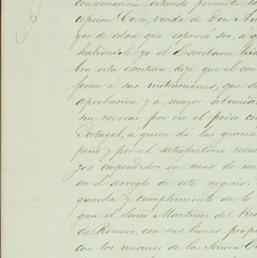 conveniencia, estando presente, la
cepcion Cos, viuda de Don An
yor de edad que espresó ser, a q
habiendole yo el Escribano lei
bra esta escritura, dijo: que el con
forme á sus instrucciones, que d
aprobacion y a mayor abunda
sin revocar por eso el poder con
Portugal, a quien da las gracias
peño y por el satisfactorio resul
gos impendidos en mas de un
en el arreglo de este negocio.
guarda y cumplimiento de lo
gan el Señor Martinez del Rio
de Romero, con sus bienes prop
con los mismos de la Señora C